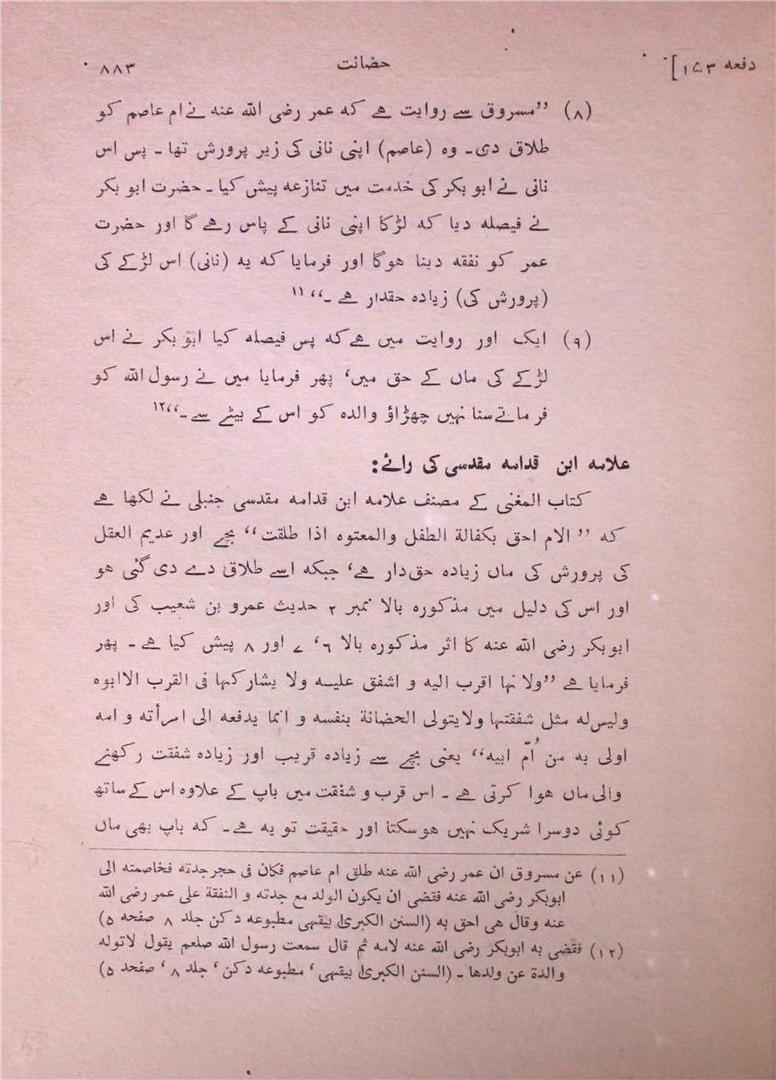 دفعہ ۱۵۳] حضانت ۸۸۳
(۸) ’’مسروق سے روایت ہے کہ عمر رضی اللہ عنہ نے ام عاصم کو
طلاق دی۔ وہ (عاصم) اپنی نانی کی زیر پرورش تھا۔ پس اس
نانی نے ابو بکر کی خدمت میں تنازعہ پیش کیا۔ حضرت ابو بکر
نے فیصلہ دیا کہ لڑکا اپنی نانی کے پاس رہے گا اور حضرت
عمر کو نفقہ دینا ہوگا اور فرمایا کہ یہ (نانی) اس لڑکے کی
(پرورش کی) زیادہ حقدار ہے۔،، ۱۱
(۹) ایک اور روایت میں ہے کہ پس فیصلہ کیا ابو بکر نے اس
لڑکے کی ماں کے حق میں، پھر فرمایا میں نے رسول اللہ کو
فرماتے سنا نہیں چھڑاؤ والدہ کو اس کے بیٹے سے۔،،۱۲
علامہ ابن قدامہ مقدسی کی رائے:
کتاب المغنی کے مصنف علامہ ابن قدامہ مقدسی جنبلی نے لکھا ہے
کہ ’’ الام احق بکفالة الطفل والمعتوہ اذا طلقت،، بچے اور عدیم العقل
کی پرورش کی ماں زیادہ حق دار ہے، جبکہ اسے طلاق دے دی گئی ہو
اور اس کی دلیل میں مذکورہ بالا نمبر ۲ حدیث عمرو بن شعیب کی اور
ابوبکر رضی اللہ عنہ کا اثر مذکورہ بالا ۶، ۷ اور ۸ پیش کیا ہے۔ پھر
فرمایا ہے ’’ولا نہا اقرب الیہ و اشفق علیہ ولا یشارکہا فی القرب الا ابوہ
ولیس لہ مثل شفقتہا ولایتولی الحضانة بنفسہ و انما یدفعہ الی امرأتہ و امہ
اولی بہ من اُمّ ابیہ،، یعنی بچے سے زیادہ قریب اور زیادہ شفقت رکھنے
والی ماں ہوا کرتی ہے۔ اس قرب و شفقت میں باپ کے علاوہ اس کے ساتھ
کوئی دوسرا شریک نہیں ہو سکتا اور حقیقت تو یہ ہے۔ کہ باپ بھی ماں
(۱۱) عن مسروق ان عمر رضی اللہ عنہ طلق ام عاصم فکان فی حجر جدتہ فخاصمتہ الی
ابوبکر رضی اللہ عنہ فقضی ان یکون الولد مع جدتہ و النفقة علی عمر رضی اللہ
عنہ وقال ھی احق بہ (السنن الکبریٰ بیقہی مطبوعہ دکن جلد ۸ صفحہ ۵)
(۱۲) فقضی بہ ابوبکر رضی اللہ عنہ لامہ ثم قال سمعت رسول اللہ صلعم یقول لاتولہ
والدة عن ولدھا۔ (السنن الکبریٰ بیقہی، مطبوعہ دکن، جلد ۸، صفحہ ۵)